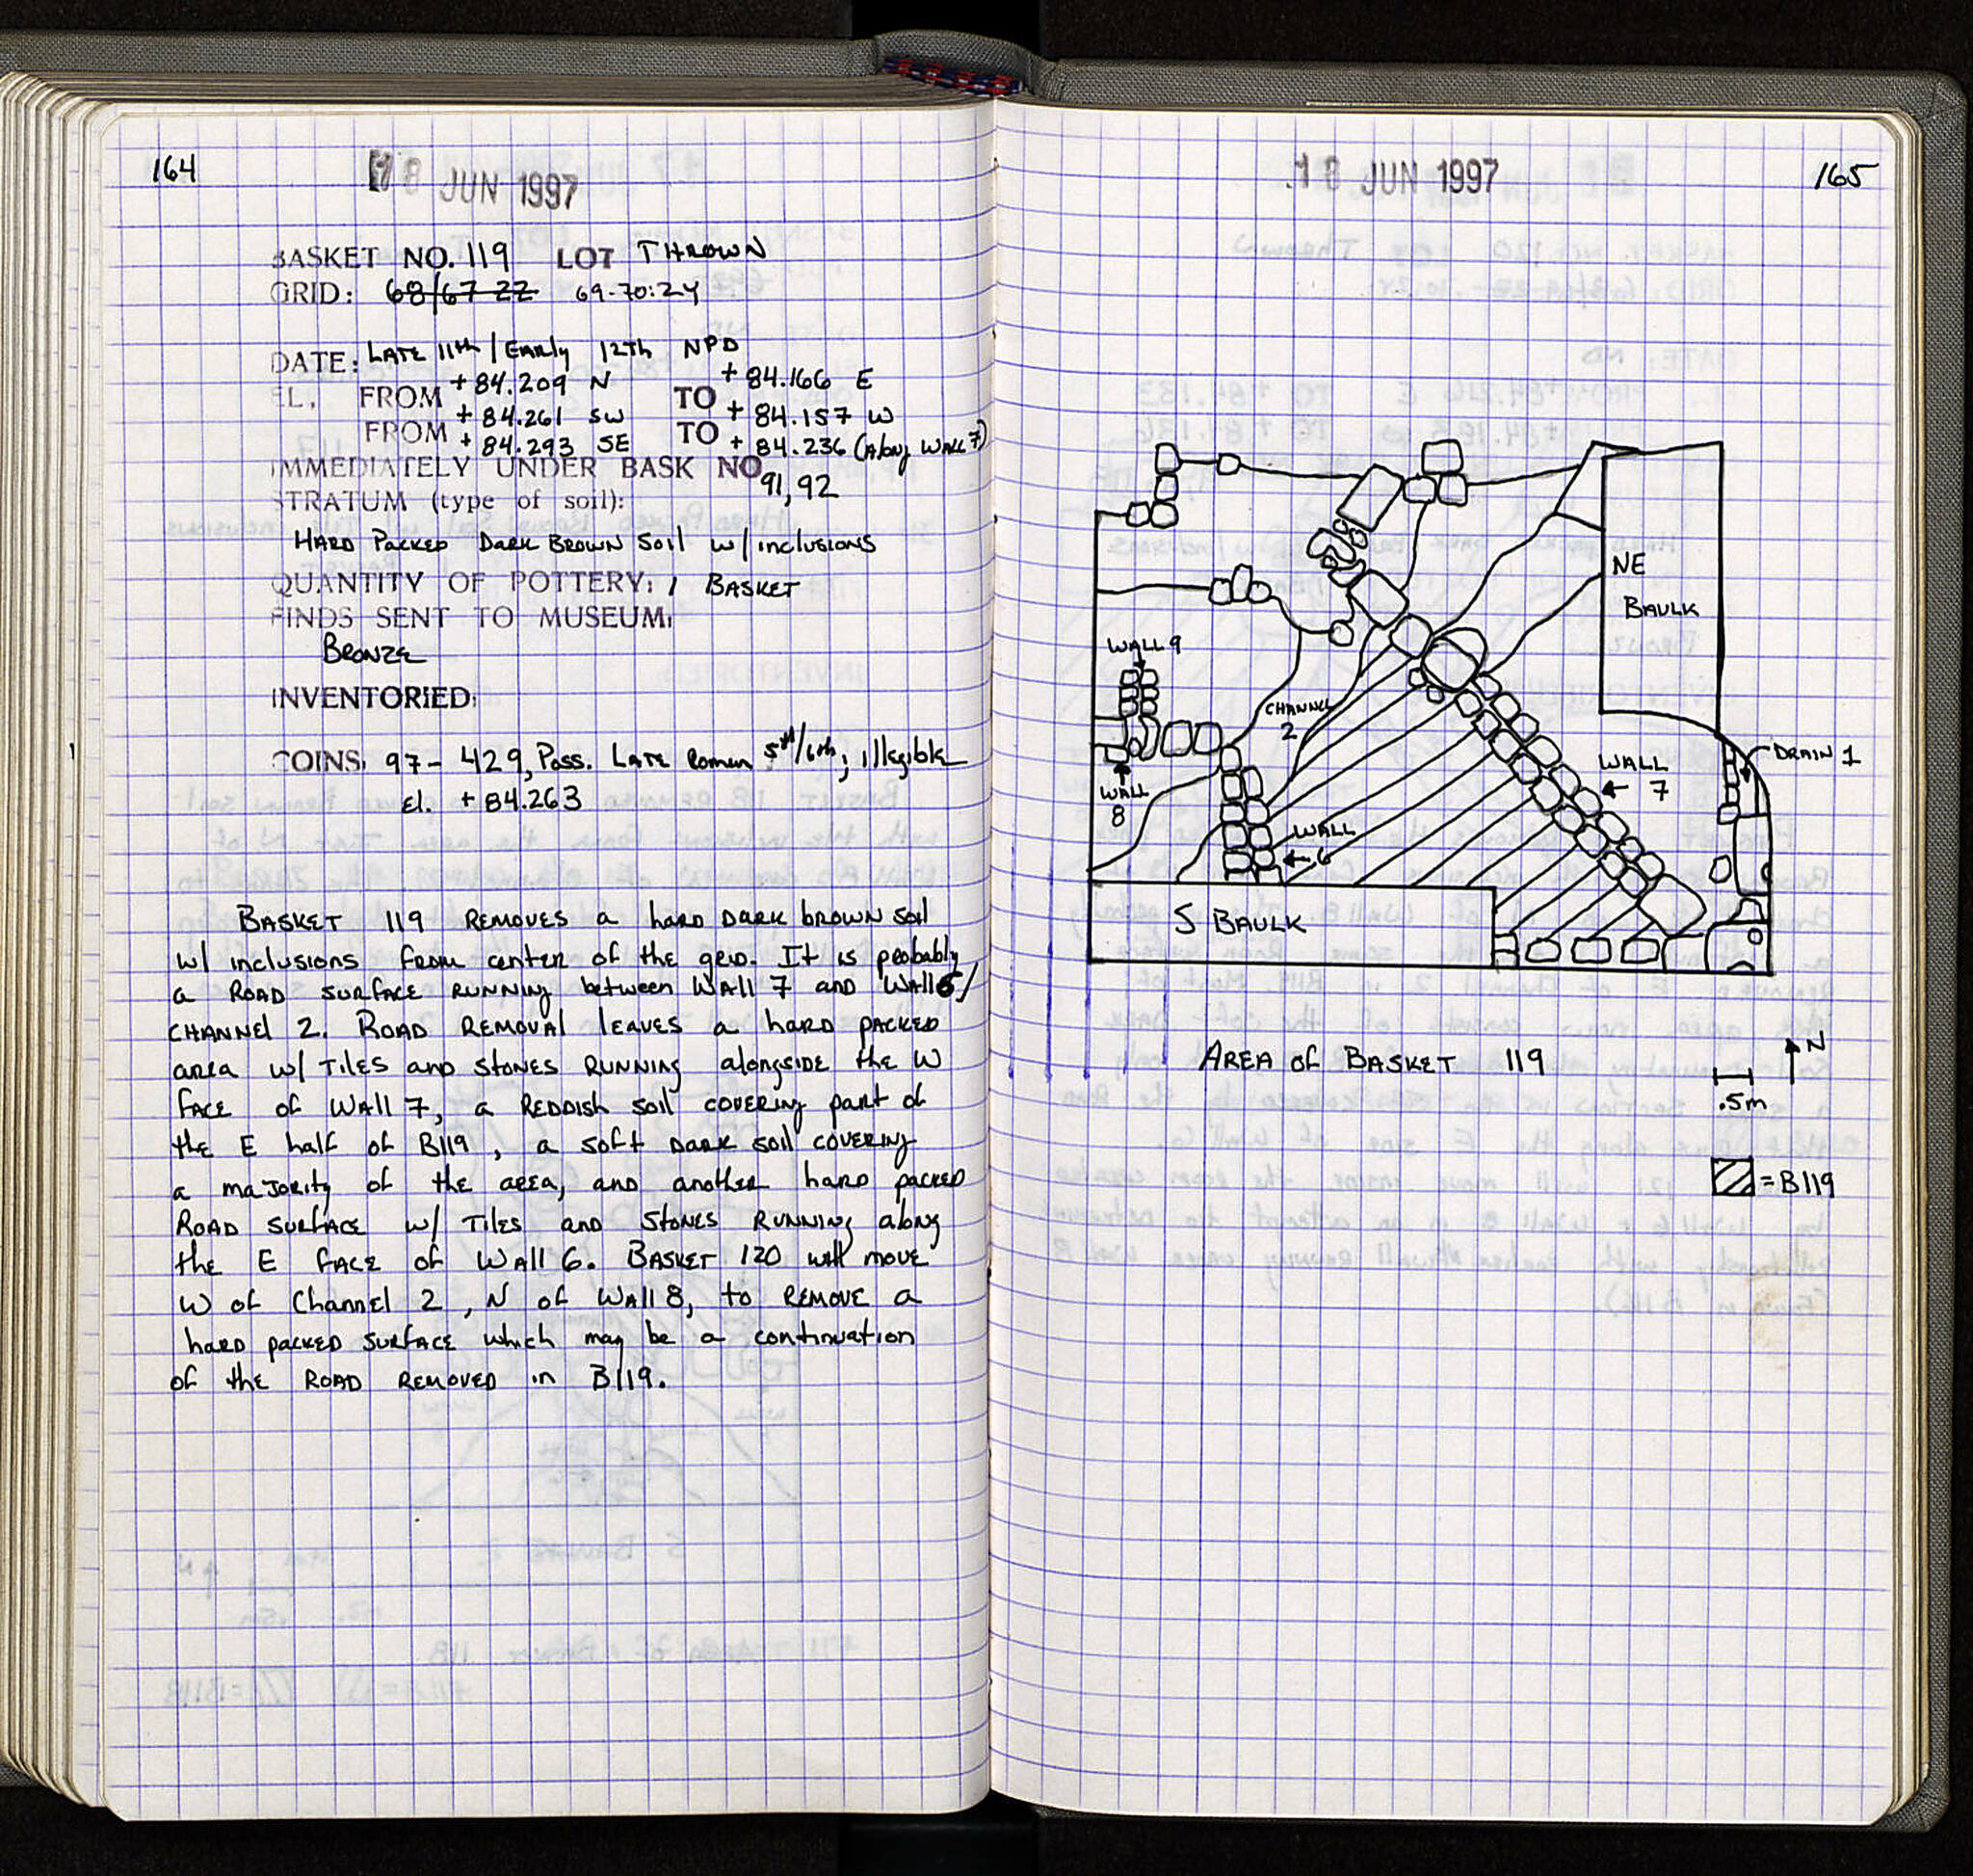 164
18 JUN 1997
BASKET NO. 119 LOT THROWN
GRID: 68/67-ZZ 69-70:ZY
DATE: LATE 11th / EARLY 12Th NPD
EL. FROM +84.209 N TO +84.166 E
FROM +84.261 SW TO +84.157 W
+84.293 SE +84.236 (Along WALL 7)
IMMEDIATELY UNDER BASK NO. 91, 92
STRATUM (type of soil):
HARD PACKED DARK BROWN SOIL W/ INCLUSIONS
QUANTITY OF POTTERY: 1 BASKET
FINDS SENT TO MUSEUM:
BRONZE
INVENTORIED:
COINS: 97-429, Poss. LATE ROMAN 5th/6th; illegible
El. +84.263
BASKET 119 REMOVES a hARD DARK bROWN Soil
w/ inclusions from center of the GRID. It is probably
a ROAD SURFACE RUNNING between WALL 7 and WALL 6/
CHANNEL 2. ROAD REMOVAL LEAVES a hARD PACKED
area w/ TILES and STONES RUNNING alongside the W
FACE of WALL 7, a REDDISH soil COVERING part of
the E half of B119, a soft DARK soil COVERING
a majority of the area, and another hard packed
ROAD SURFACE w/ TILES and STONES RUNNING along
the E FACE of WALL 6. BASKET 120 will move
W of Channel 2, N of WALL 8, to REMOVE a
hard packed surface which may be a continuation
of the ROAD REMOVED in B119.
18 JUN 1997
165
NE
BAULK
WALL 9
CHANNEL
2
DRAIN 1
WALL
7
WALL
8
WALL
6
S BAULK
AREA of BASKET 119
N
.5m
= B119